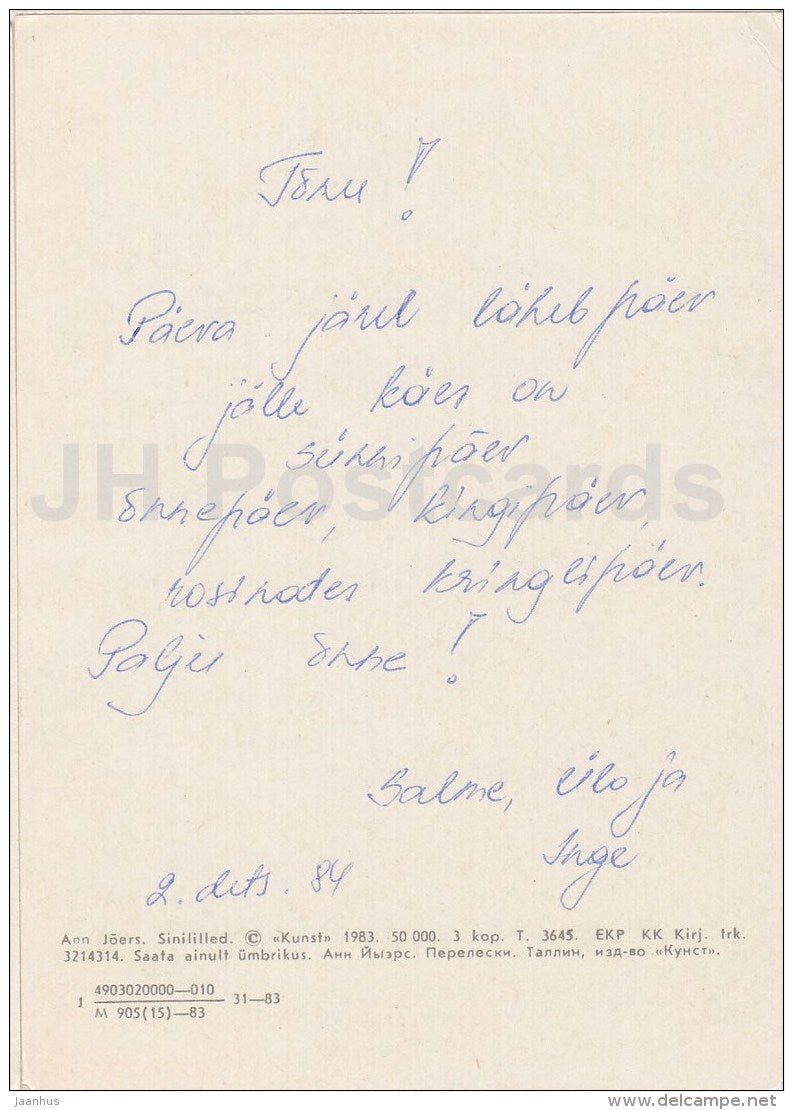 Tõnu!
Päeva järel läheb päev
jälle käes on
sünnipäev
õnnepäev, kingipäev,
rosinates kringlipäev.
Palju õnne!
Salme, Ülo ja
Inge
2. dets. 84
JH Postcards
Ann Jõers. Sinililled. © «Kunst» 1983. 50 000. 3 kop. T. 3645. EKP KK Kirj. trk.
3214314. Saata ainult ümbrikus. Анн Йыэрс. Перелески. Таллин, изд-во «Кунст».
J 4903020000—010 31—83
M 905(15)—83
jaanhus
delcampe.net